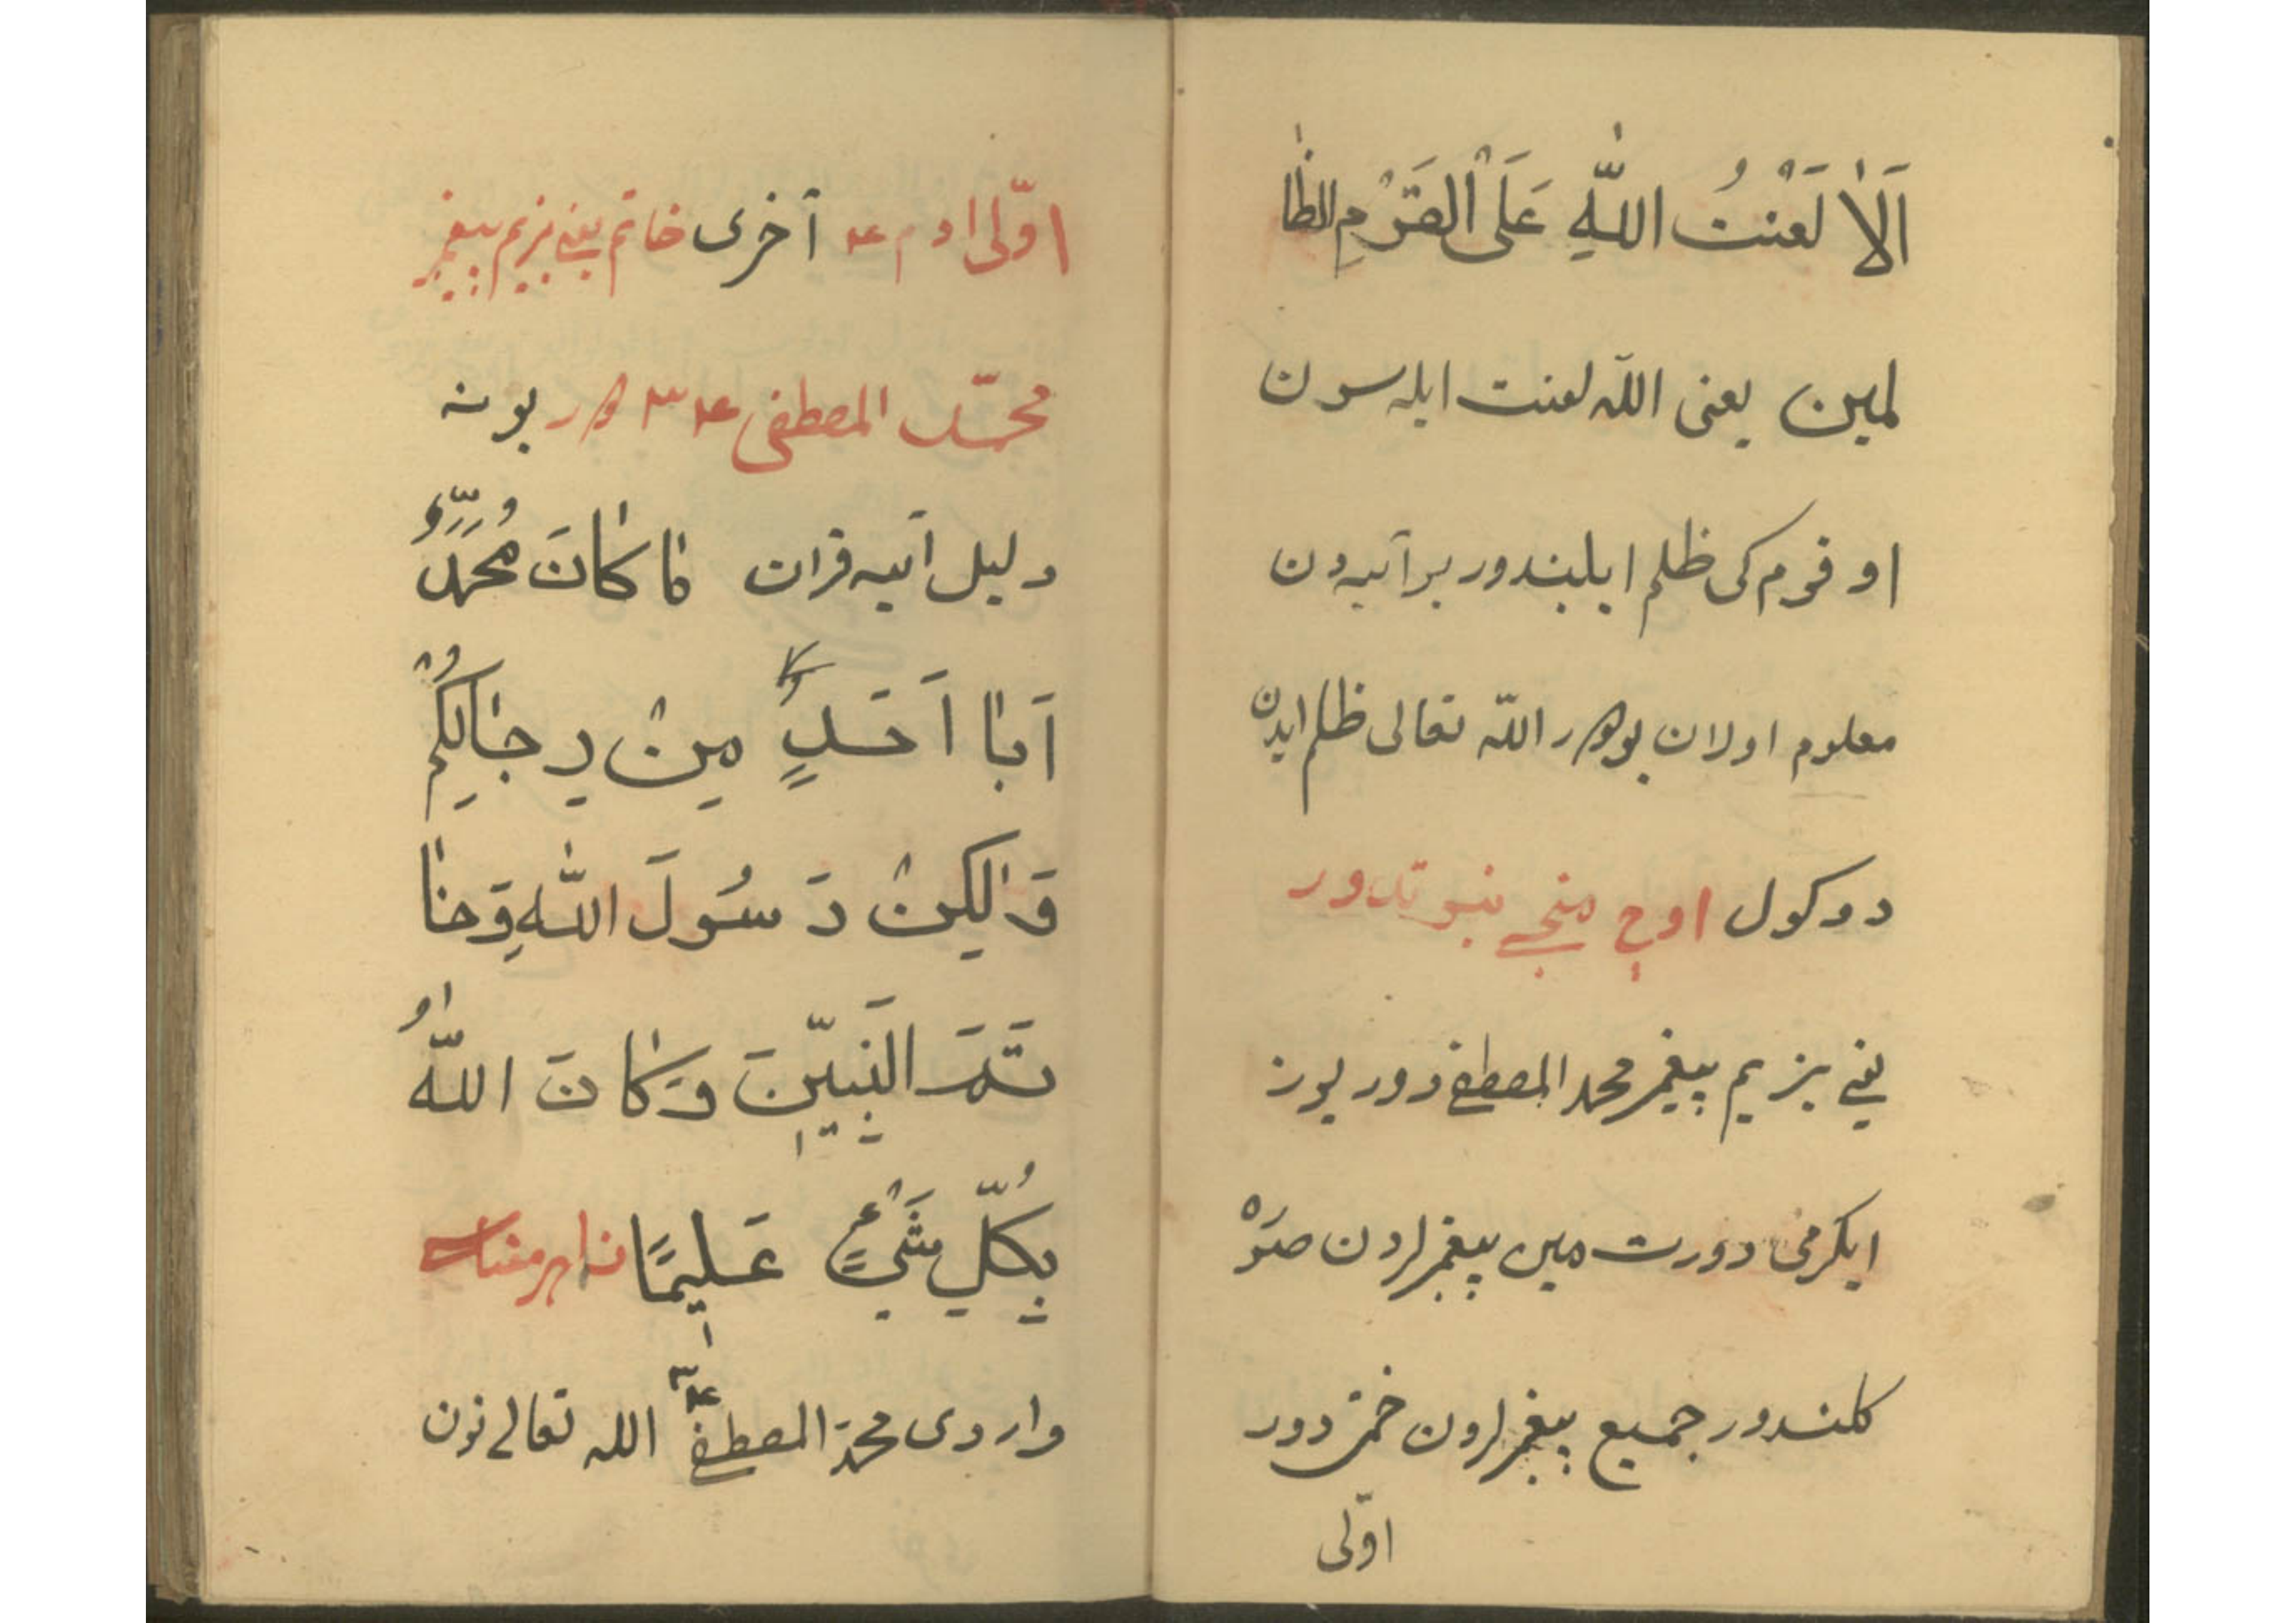 اَلاٰ لَعْنتُ اللّٰهِ عَلَى الْقَوْمِ الظّا
لمين يعنى اللّه لعنت ايله سون
او قوم كى ظلم ايلبندور بر آيه دن
معلوم اولان بودر اللّه تعالى ظلم ايدن
دوكول اوچ منجى نبوتدور
يعنى بزيم پيغمبر محمد المصطفى دور يوز
ايكرمى دورت مين پيغمبرلردن صوْ
كلندور جميع پيغمبرلرون ختمى دور
اوّلى
اوّلى ادم عـ آخرى خاتم يعنى بزيم پيغمبر
محمّد المصطفى بونه
دليل آيه قران مٰا كٰانَ مُحَمَّدٌ
اَبٰا اَحَدٍ مِنْ رِجٰالِكُمْ
وَلٰكِنْ رَسُولَ اللّٰهِ وَخٰا
تَمَ النَبِيّٖنَ وَكٰانَ اللّٰهُ
بِكُلِّ شَيْءٍ عَلٖيمًا
واردى محمّد المصطفى الله تعالى نون